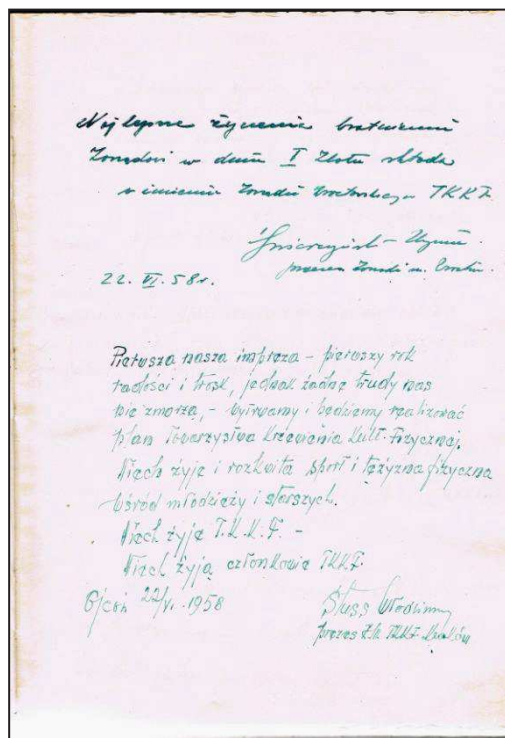 Najlepsze życzenia bratniemu
Zarządowi w dniu I Zlotu składa
w imieniu Zarządu Krakowskiego TKKF.
22. VI. 58r.
Pierwsza nasza impreza – pierwszy rok
radości i trosk, jednak żadne trudy nas
nie zmorzą, – wytrwamy i będziemy realizować
plan Towarzystwa Krzewienia Kult. Fizycznej.
Niech żyje i rozkwita sport i tężyzna fizyczna
wśród młodzieży i starszych.
Niech żyje T.K.K.F. –
Niech żyją członkowie TKKF.
Ojców 22/VI. 1958
Stuss Włodzimierz
prezes TKKF Kraków